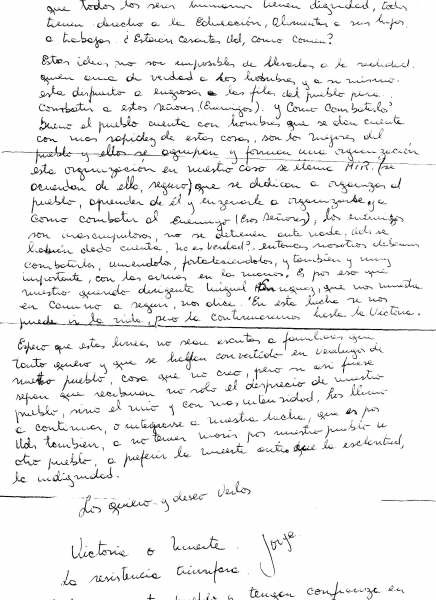 que todos los seres humanos tienen dignidad, todos
tienen derecho a la Educación, Alimentar a sus hijos
a trabajar ¿Estaran cesantes Ud, como comen?
Estas ideas no son imposibles de llevarlas a la realidad.
quien ama de verdad a los hombres y a si mismo
esta dispuesto a engrosar las filas del pueblo para
combatir a estos señores (Enemigos). y Como Combatirlo?
Bueno el pueblo cuenta con hombres que se dan cuenta
con mas rapidez de estas cosas, son lo mejores del
pueblo y ellos se agrupan y forman una organización
esta organizacion en nuestro caso se llama MIR. (se
acuerdan de ella, seguro) que se dedican a organizar al
pueblo, aprender de él y enseñarle a organizarse, ya
como combatir al Enemigo (los señores), los enemigos
son inescrupulosos, no se detienen ante nada, Uds. se
habrán dado cuenta, No es verdad? entonces nosotros debemos
combatirlos, uniendolos, fortaleciendolos, y tambien y muy
importante, con las armas en la mano. Es por eso que
nuestro querido dirigente Miguel Enriquez, que nos invita
en camino a seguir, nos dice "En esta lucha se nos
puede ir la vida, pero la continuaremos hasta la Victoria.
Espero que estas lineas no sean escritas a familiares que
tanto quiero y que se hallan convertido en verdugos de
nuestro pueblo, cosa que no creo, pero si asi fuese
sepan que recibiran no solo el desprecio de nuestro
pueblo, sino el mio y con mas intensidad, los llamo
a continuar, o integrarse a nuestra lucha, que es por
Uds tambien, a no temer morir por nuestro pueblo u
otro pueblo, a preferir la muerte antes que la esclavitud,
la indignidad.
Los quiero y deseo verlos
Victoria o Muerte. Jorge
La resistencia triunfara.
pueblo y tengan confianza en